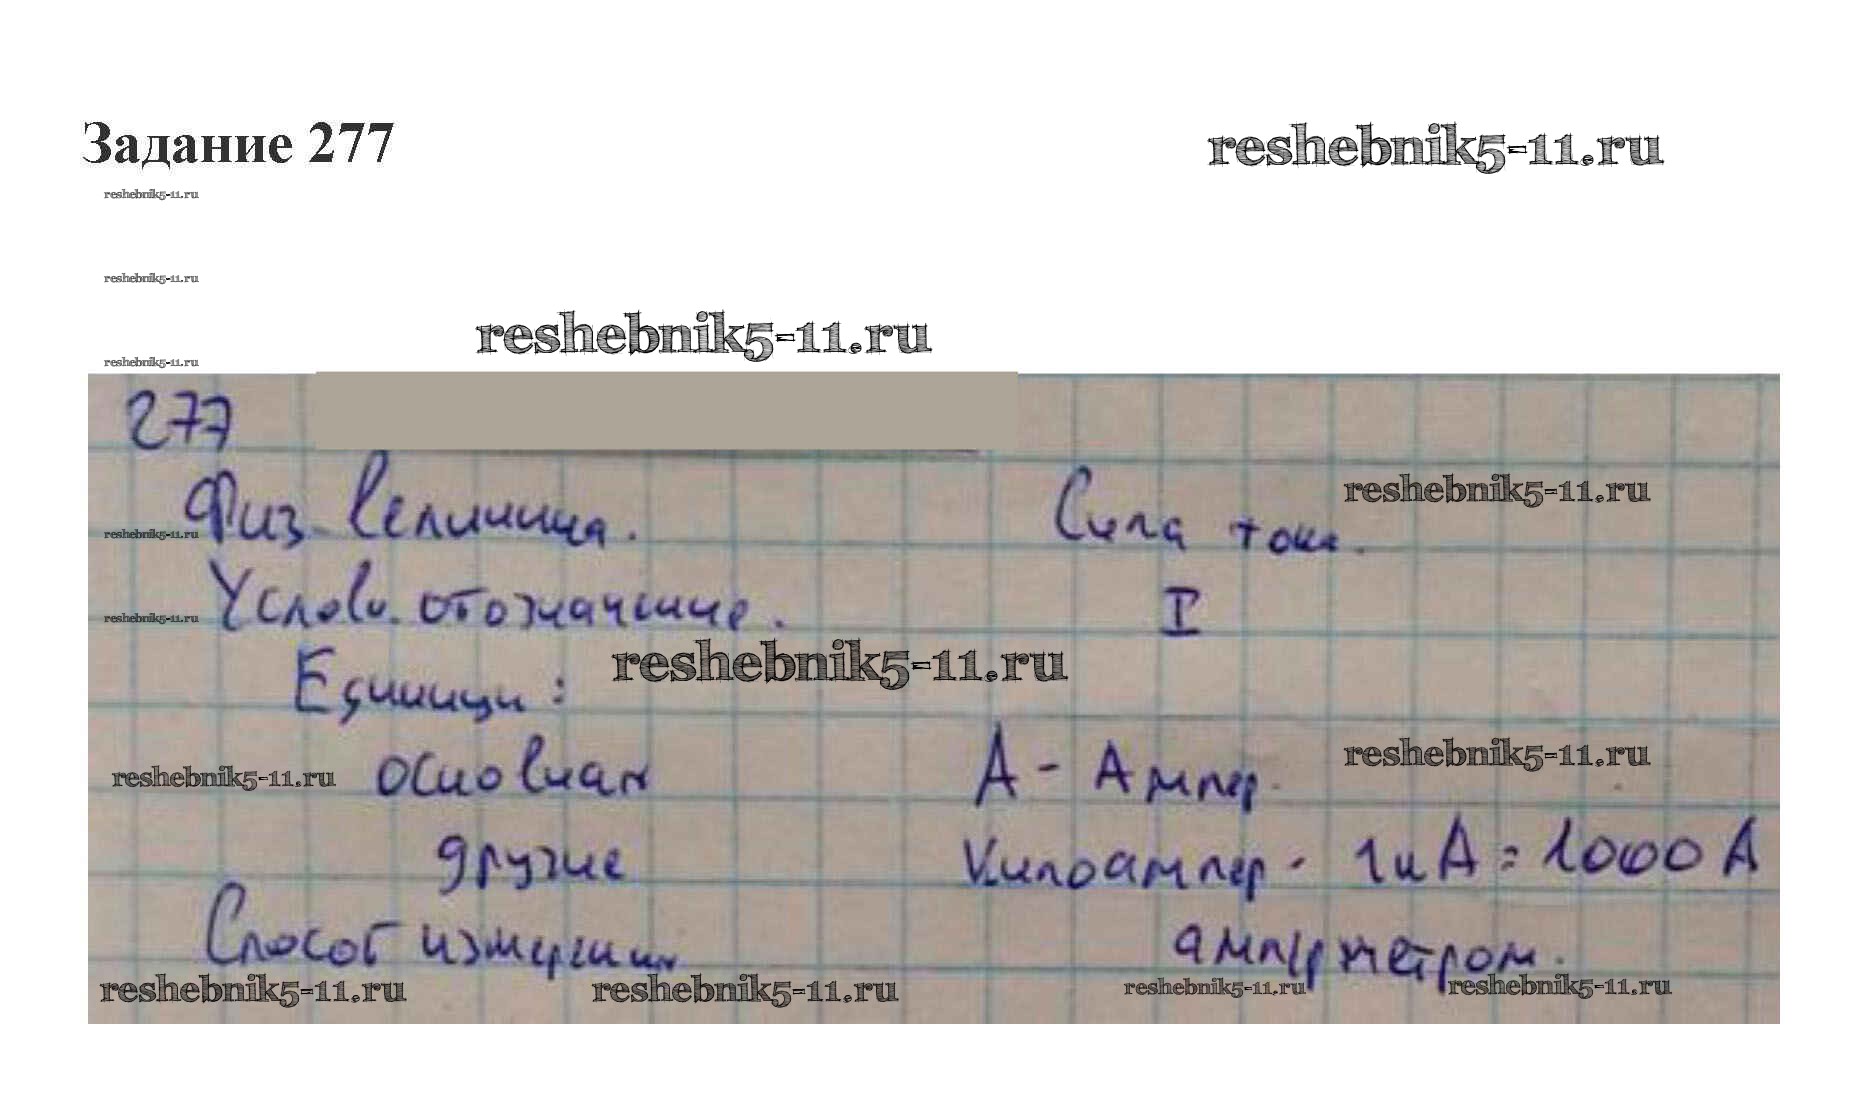 Задание 277
reshebnik5-11.ru
reshebnik5-11.ru
reshebnik5-11.ru
reshebnik5-11.ru
reshebnik5-11.ru
277
Физ. величина. Сила тока.
reshebnik5-11.ru
reshebnik5-11.ru
Условн. обозначение. I
reshebnik5-11.ru
Единицы:
reshebnik5-11.ru
основная А - Ампер.
reshebnik5-11.ru
reshebnik5-11.ru
другие Килоампер - 1кА = 1000 А
Способ измерения амперметром.
reshebnik5-11.ru
reshebnik5-11.ru
reshebnik5-11.ru
reshebnik5-11.ru